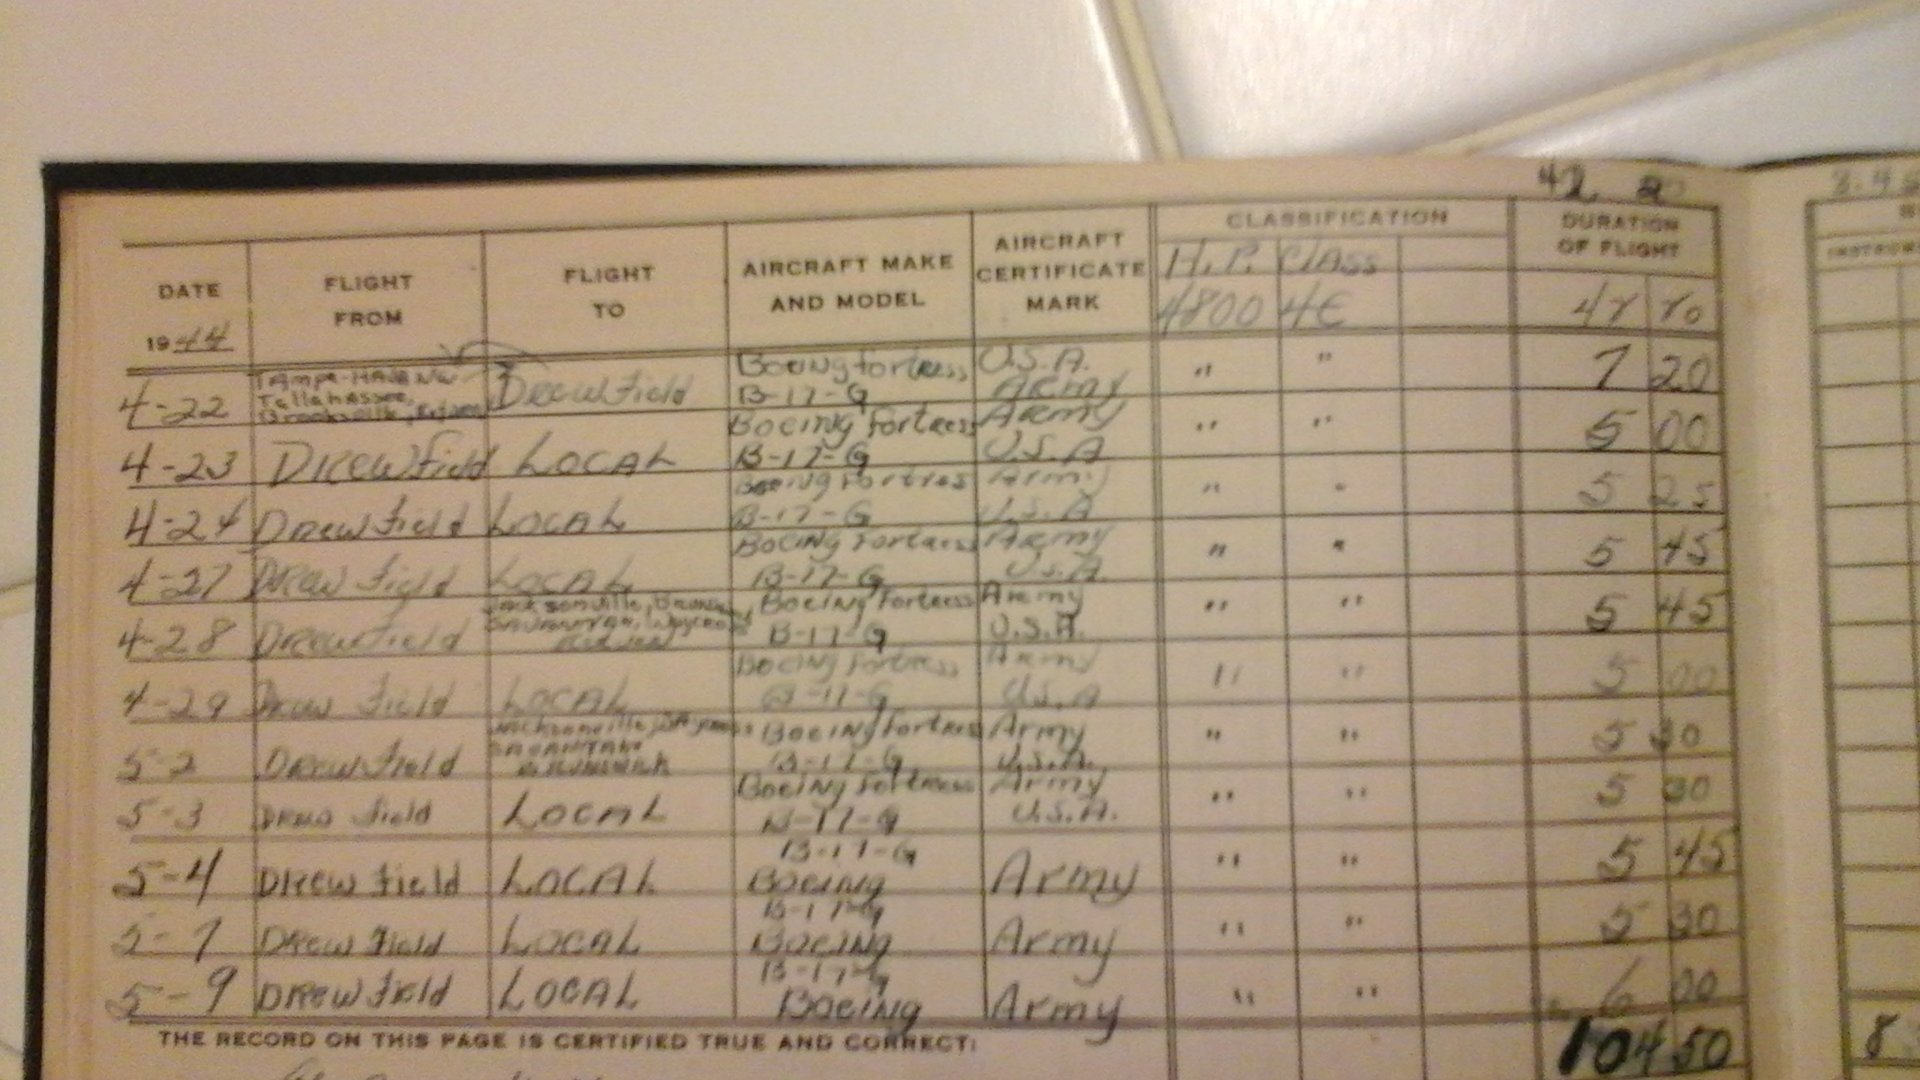 42 20
CLASSIFICATION DURATION OF FLIGHT
DATE 1944 FLIGHT FROM FLIGHT TO AIRCRAFT MAKE AND MODEL AIRCRAFT CERTIFICATE MARK H.P. Class
4800 4E
4-22 Tampa- Tallahassee, Brooksville, Drew Field Boeing Fortress B-17-G U.S.A. Army " " 7 20
4-23 Drew Field LOCAL Boeing Fortress B-17-G Army U.S.A " " 5 00
4-24 Drew Field LOCAL Boeing Fortress B-17-G Army U.S.A " " 5 25
4-27 Drew Field LOCAL Boeing Fortress B-17-G Army U.S.A " " 5 45
4-28 Drew Field Jacksonville, Boeing Fortress B-17-G Army U.S.A. " " 5 45
4-29 Drew Field LOCAL Boeing Fortress B-17-G Army U.S.A " " 5 00
5-2 Drew Field Jacksonville, Boeing Fortress B-17-G Army U.S.A. " " 5 30
5-3 Drew Field LOCAL Boeing Fortress B-17-G Army U.S.A. " " 5 30
5-4 Drew Field LOCAL B-17-G Boeing Army " " 5 45
5-7 Drew Field LOCAL B-17-G Boeing Army " " 5 30
5-9 Drew Field LOCAL B-17-G Boeing Army " " 6 00
THE RECORD ON THIS PAGE IS CERTIFIED TRUE AND CORRECT:
104 50